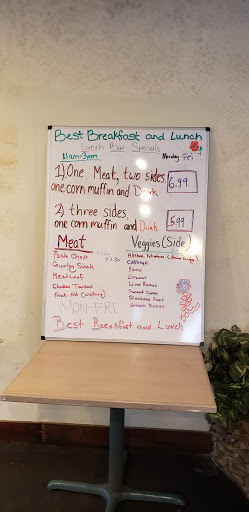 Best Breakfast and Lunch
Lunch Bar Specials
11am-3pm Monday-Fri
1) One Meat, two sides,
one corn muffin and Drink 6.99
2) three sides,
one corn muffin and Drink 5.99
Meat Veggies (Side)
Pork Chop
Country Steak
Meatloaf
Chicken Tenders
Fried Fish
Mashed Potatoes
Cabbage
Yams
Greens
Lima Beans
Sweet Corn
Green Beans
MON-FRI
Best Breakfast and Lunch